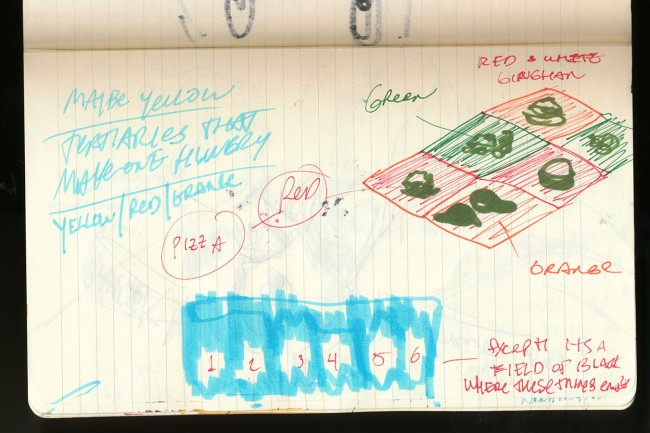 MAYBE YELLOW
TERTIARIES THAT
MAKE ONE HUNGRY
YELLOW/RED/ORANGE
RED & WHITE
GINGHAM
GREEN
RED
PIZZA
ORANGE
1 2 3 4 5 6
EXCEPT ITS A
FIELD OF BLACK
WHERE THESE THINGS